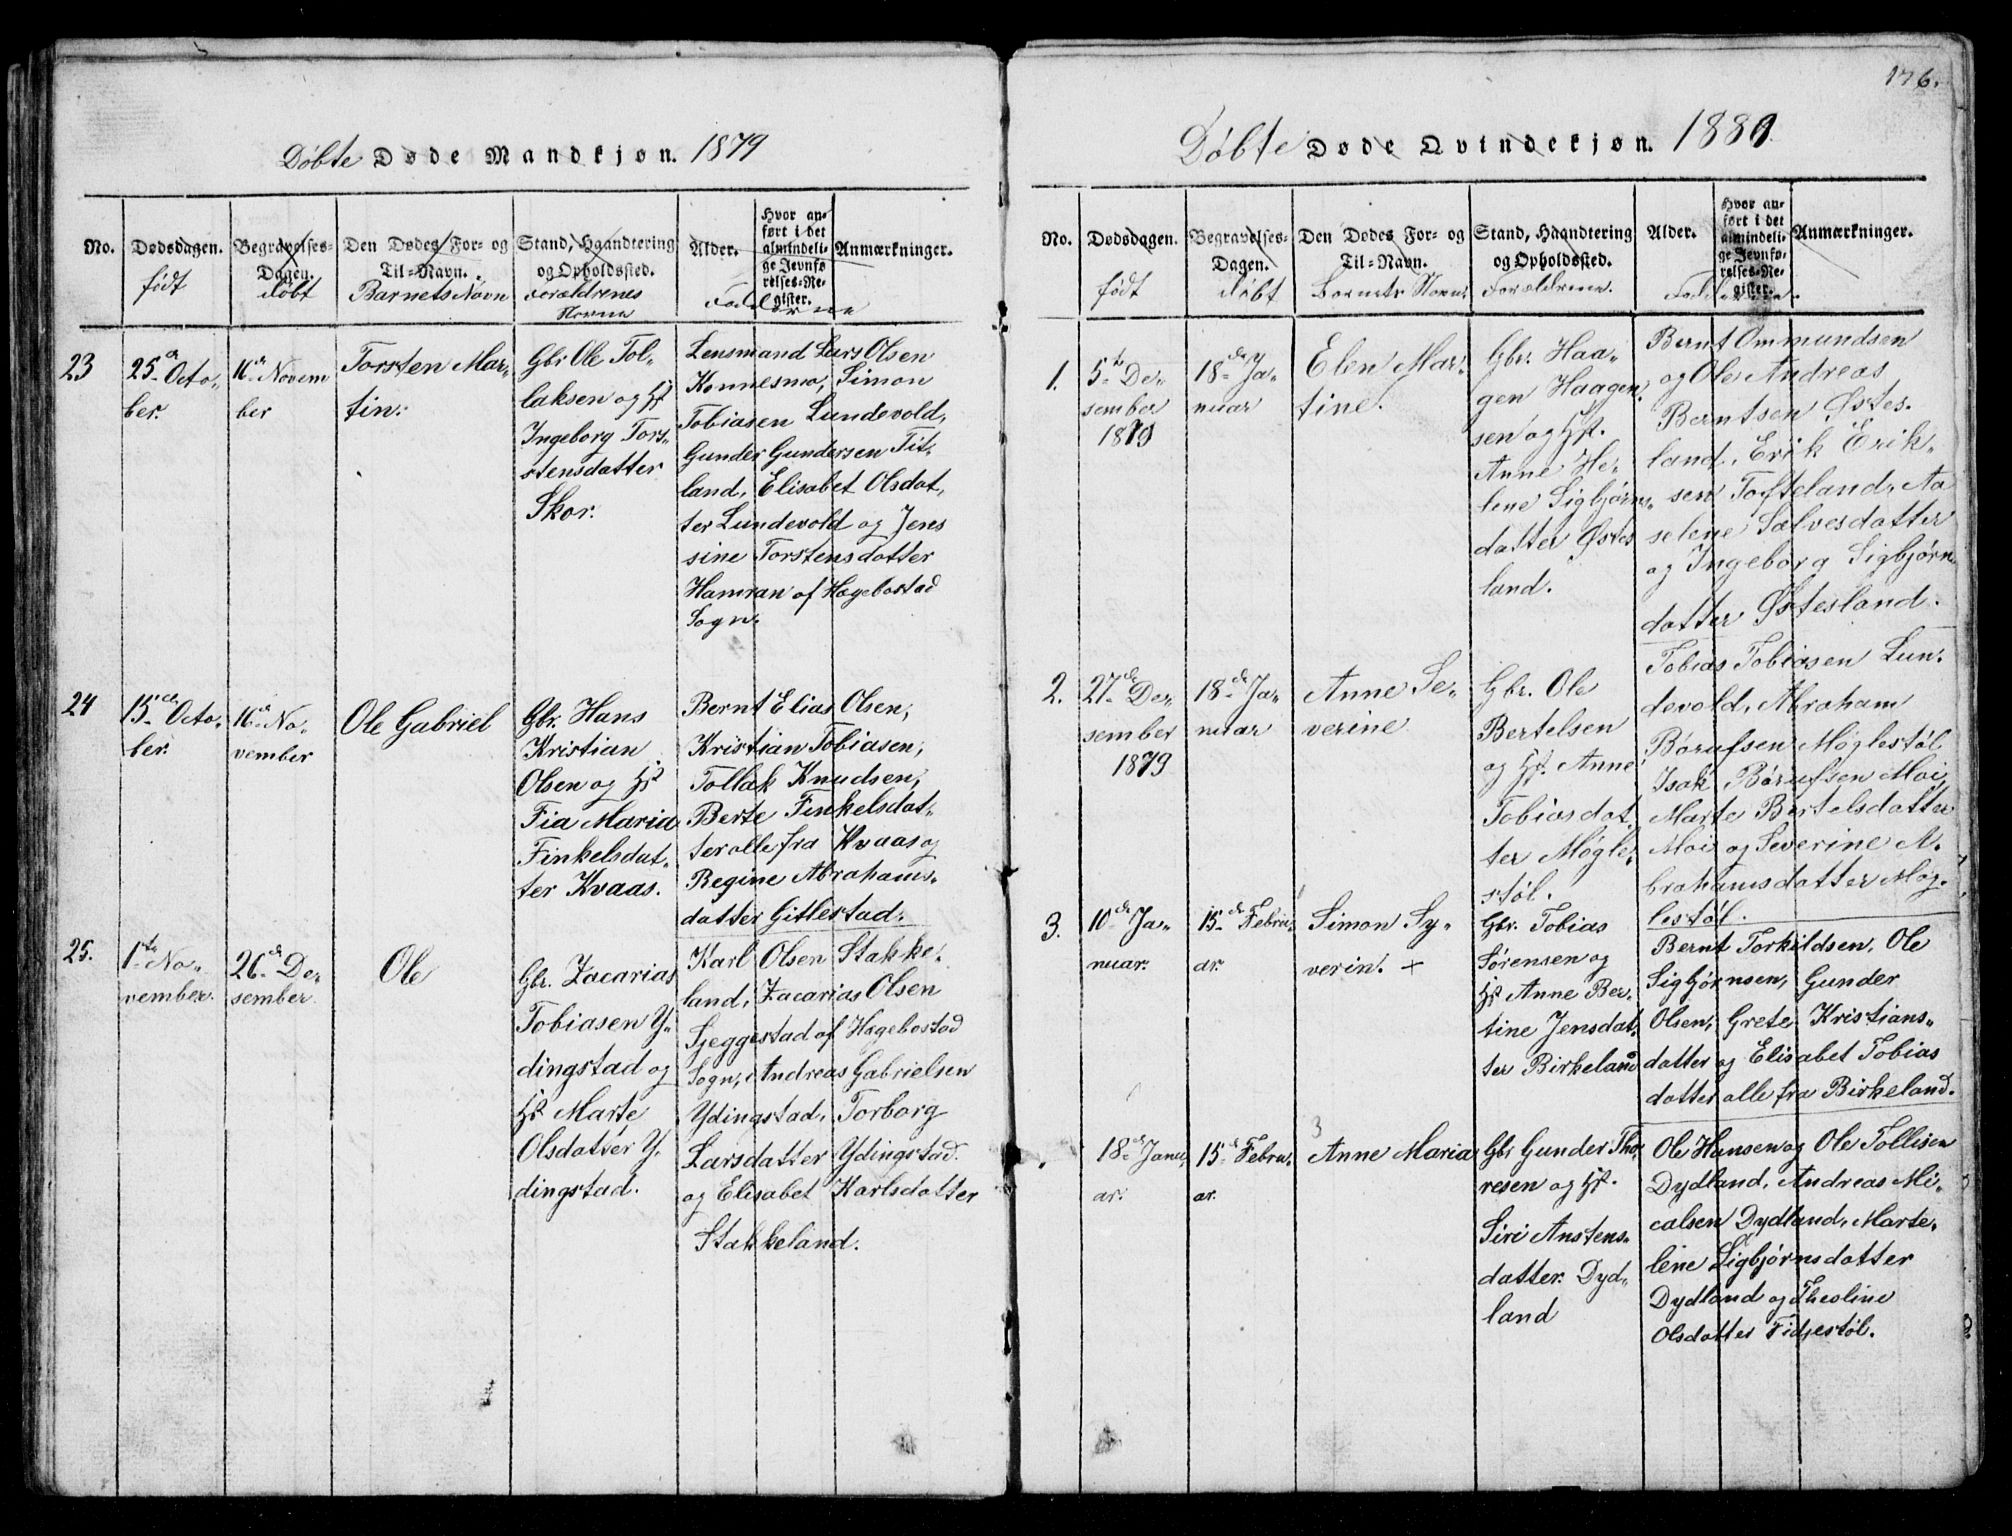 176.
Döbte Døde Mandkjøn. 1879
No.
Dødsdagen.
født
Begravelses-
Dagen.
döbt
Den Dødes For- og
Til-Navn.
Barnets Navn
Stand, Haandtering
og Opholdssted.
Forældrenes
Navne
Alder.
Hvor an-
ført i det
almindeli-
ge Jevnfø-
relses-Re-
gister.
Anmærkninger.
Fadderne
23
25de Octo-
ber.
16de Novem
ber
Torsten Mar-
tin.
Gbr Ole Tol-
laksen og Hst
Ingeborg Tors-
stensdatter
Skor.
Lensmand Lars Olsen
Konnesmo, Simon
Tobiasen Lundevold,
Gunder Gundersen Tit-
land, Elisabet Olsdat-
ter Lundevold og Jens
sine Torstensdatter
Hamran af Hægebostad
Sogn.
24
15de Octo-
ber.
16de No-
vember
Ole Gabriel
Gbr. Hans
Kristian
Olsen og Hst
Fia Maria
Finkelsdat-
ter Kvaas.
Bernt Elias Olsen,
Kristian Tobiasen,
Tollak Knudsen,
Berte Finkelsdat-
ter alle fra Kvaas og
Regine Abrahams-
datter Gitlestad.
25.
1te No-
vember.
26de De-
sember.
Ole
Gbr. Zacarias
Tobiasen Y-
dingstad og
Hst Marte
Olsdatter Y-
dingstad.
Karl Olsen Stakke-
land, Zacarias Olsen
Sjeggestad af Hægebostad
Sogn, Andreas Gabrielsen
Ydingstad, Torborg
Larsdatter Ydingstad
og Elisabet Karlsdatter
Stakkeland.
Döbte Døde Qvindekjøn. 1880.
No.
Dødsdagen.
født
Begravelses-
Dagen.
döbt
Den Dødes For- og
Til-Navn.
Barnets Navn.
Stand, Haandtering
og Opholdssted.
Forældrene.
Alder.
Hvor an-
ført i det
almindeli-
ge Jevnfø-
relses-Re-
gister.
Anmærkninger.
Fadderne.
1.
5te De-
sember
1879
18de Ja-
nuar
Elen Mar-
tine.
Gbr. Haa-
gen Haagen
sen og Hst.
Anne He-
lene Sigbjørns-
datter Østes
land.
Bernt Ommundsen
og Ole Andreas
Berntsen Østes-
land, Erik Erik-
sen Tofteland, Aa
selene Salvesdatter
og Ingeborg Sigbjørn-
datter Østesland.
2.
27de De-
sember
1879
18de Ja-
nuar
Anne Se-
verine
Gbr. Ole
Bertelsen
og Hst. Anne
Tobiasdat-
ter Møgle-
støl.
Tobias Tobiasen Lun-
devold, Abraham
Børufsen Møglestøl,
Isak Børufsen Moi,
Marte Bertelsdatter
Moi og Severine A-
brahamsdatter Møg-
lestøl.
3.
10de Ja-
nuar.
15de Febru-
ar.
Simon Sy-
verin. +
Gbr. Tobias
Sørensen og
Hst Anne Ber-
tine Jensdat-
ter Birkeland
Bernt Torkildsen, Ole
Sigbjørnsen, Gunder
Olsen, Grete Kristians-
datter og Elisabet Tobias
datter alle fra Birkeland.
18de Janu-
ar.
15de Febru-
ar.
3
Anne Maria
Gbr Gunder Tho-
resen og Hst.
Siri Anstens-
datter. Dyd-
land
Ole Hansen og Ole Tollisen
Dydland, Andreas Mi-
calsen Dydland, Marte-
lene Sigbjørnsdatter
Dydland og Theoline
Olsdatter Fidjestøl.